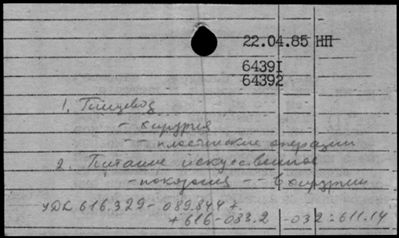 22.04.85 НП
64391
64392
1. Пищевод
- хирургия
- - пластические операции
2. Питание искусственное
- показания - - в хирургии
УДК 616.329-089.844 +
+ 616-083.2 -032:611.14